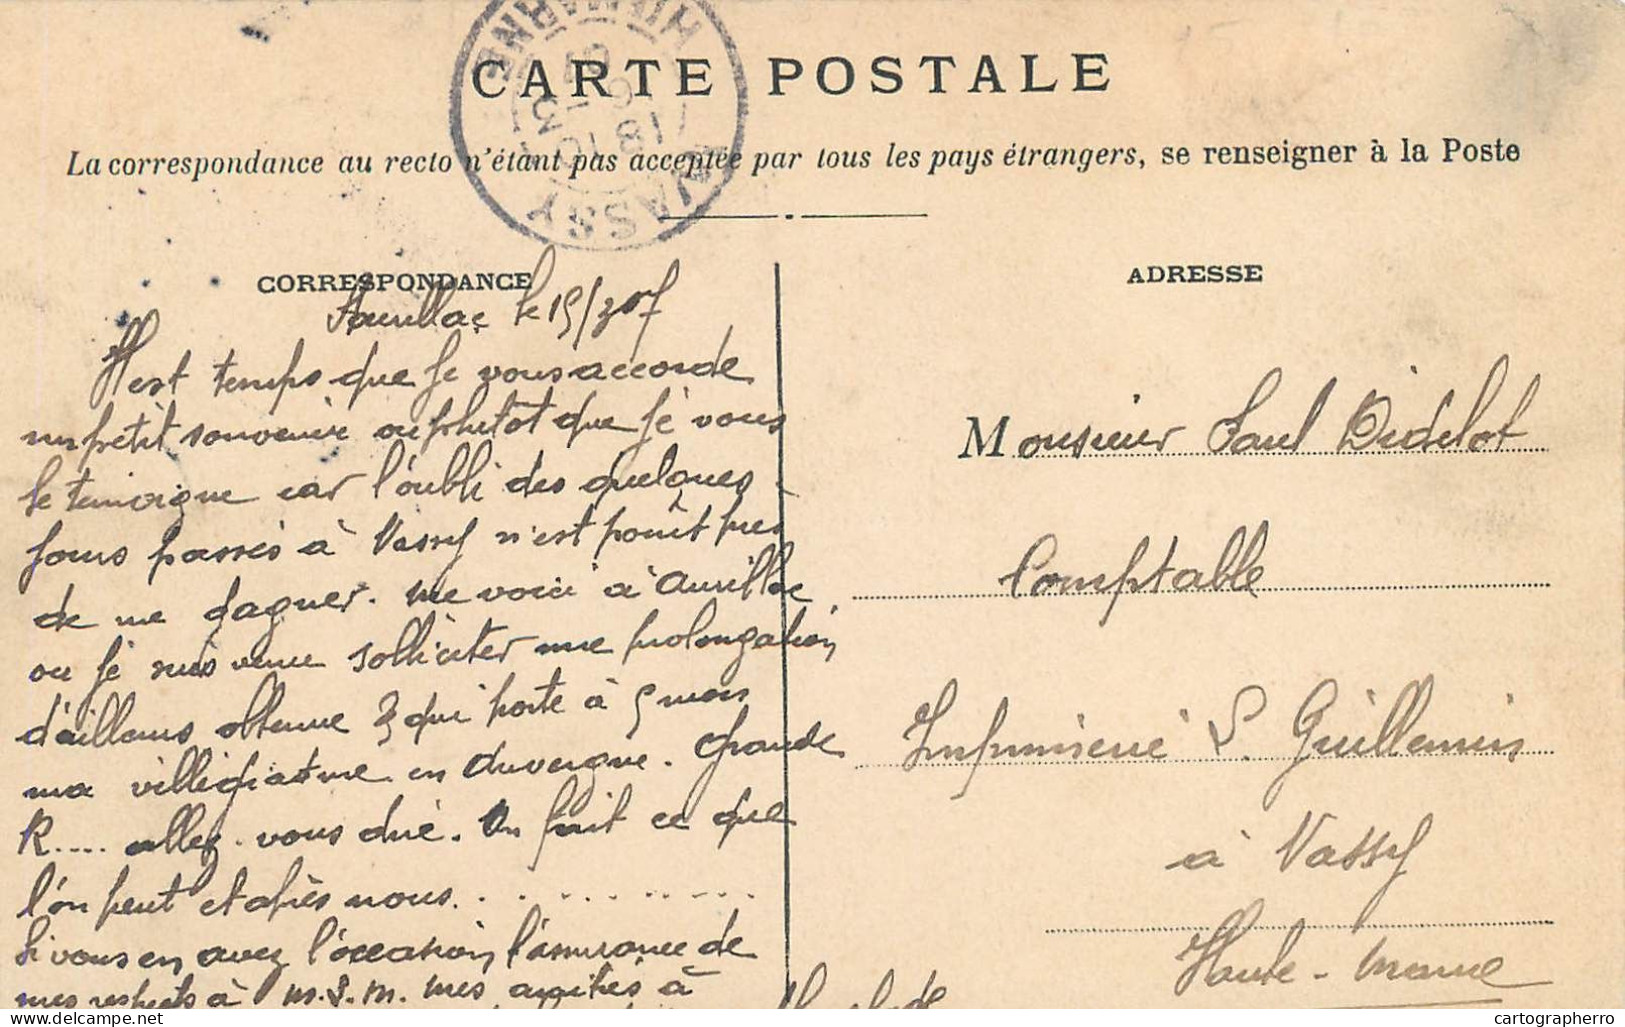 CARTE POSTALE
La correspondance au recto n'étant pas acceptée par tous les pays étrangers, se renseigner à la Poste
WASSY
HTE MARNE
CORRESPONDANCE
ADRESSE
Aurillac le 15/3 07
Il est temps que je vous accorde
un petit souvenir ou plutot que je vous
le temoigne car l'oubli des quelques
jours passés à Vassy n'est point pres
de me gagner. me voici à Aurillac
ou je suis venu solliciter une prolongation
d'ailleurs obtenue & qui porte à 5 mois
ma villégiature en Auvergne. Grande
R.... allez-vous dire. On fait ce que
l'on peut et après nous. . . . . . . . .
Si vous en avez l'occasion l'assurance de
mes respects à M.S.M. mes amitiés à
Monsieur Paul Didelot
Comptable
Imprimerie P. Guillemin
à Vassy
Haute-Marne
www.delcampe.net
cartographerro